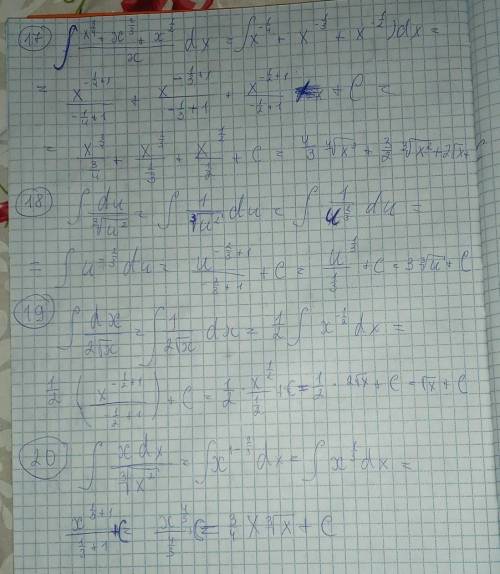 17) ∫ (x^(3/4) + x^(2/3) + x^(1/2))/x dx = ∫(x^(-1/4) + x^(-1/3) + x^(-1/2))dx =
= x^(-1/4+1)/(-1/4+1) + x^(-1/3+1)/(-1/3+1) + x^(-1/2+1)/(-1/2+1) + C =
+ C = 4/3 ∜x³ + 3/2 ∛x² + 2√x +
18) ∫ du/∛u² = ∫ 1/∛u² du = ∫ 1/u^(2/3) du =
= ∫ u^(-2/3) du = u^(-2/3+1)/(-2/3+1) + C = u^(1/3)/(1/3) + C = 3∛u + C
19) ∫ dx/2√x = ∫ 1/2√x dx = 1/2 ∫ x^(-1/2) dx =
1/2 (x^(-1/2+1)/(-1/2+1)) + C = 1/2 · x^(1/2)/(1/2) + C = 1/2 · 2√x + C = √x + C
20) ∫ x dx/∛x² = ∫ x^(1-2/3) dx = ∫ x^(1/3) dx =
x^(1/3+1)/(1/3+1) + C = x^(4/3)/(4/3) C = 3/4 x ∛x + C